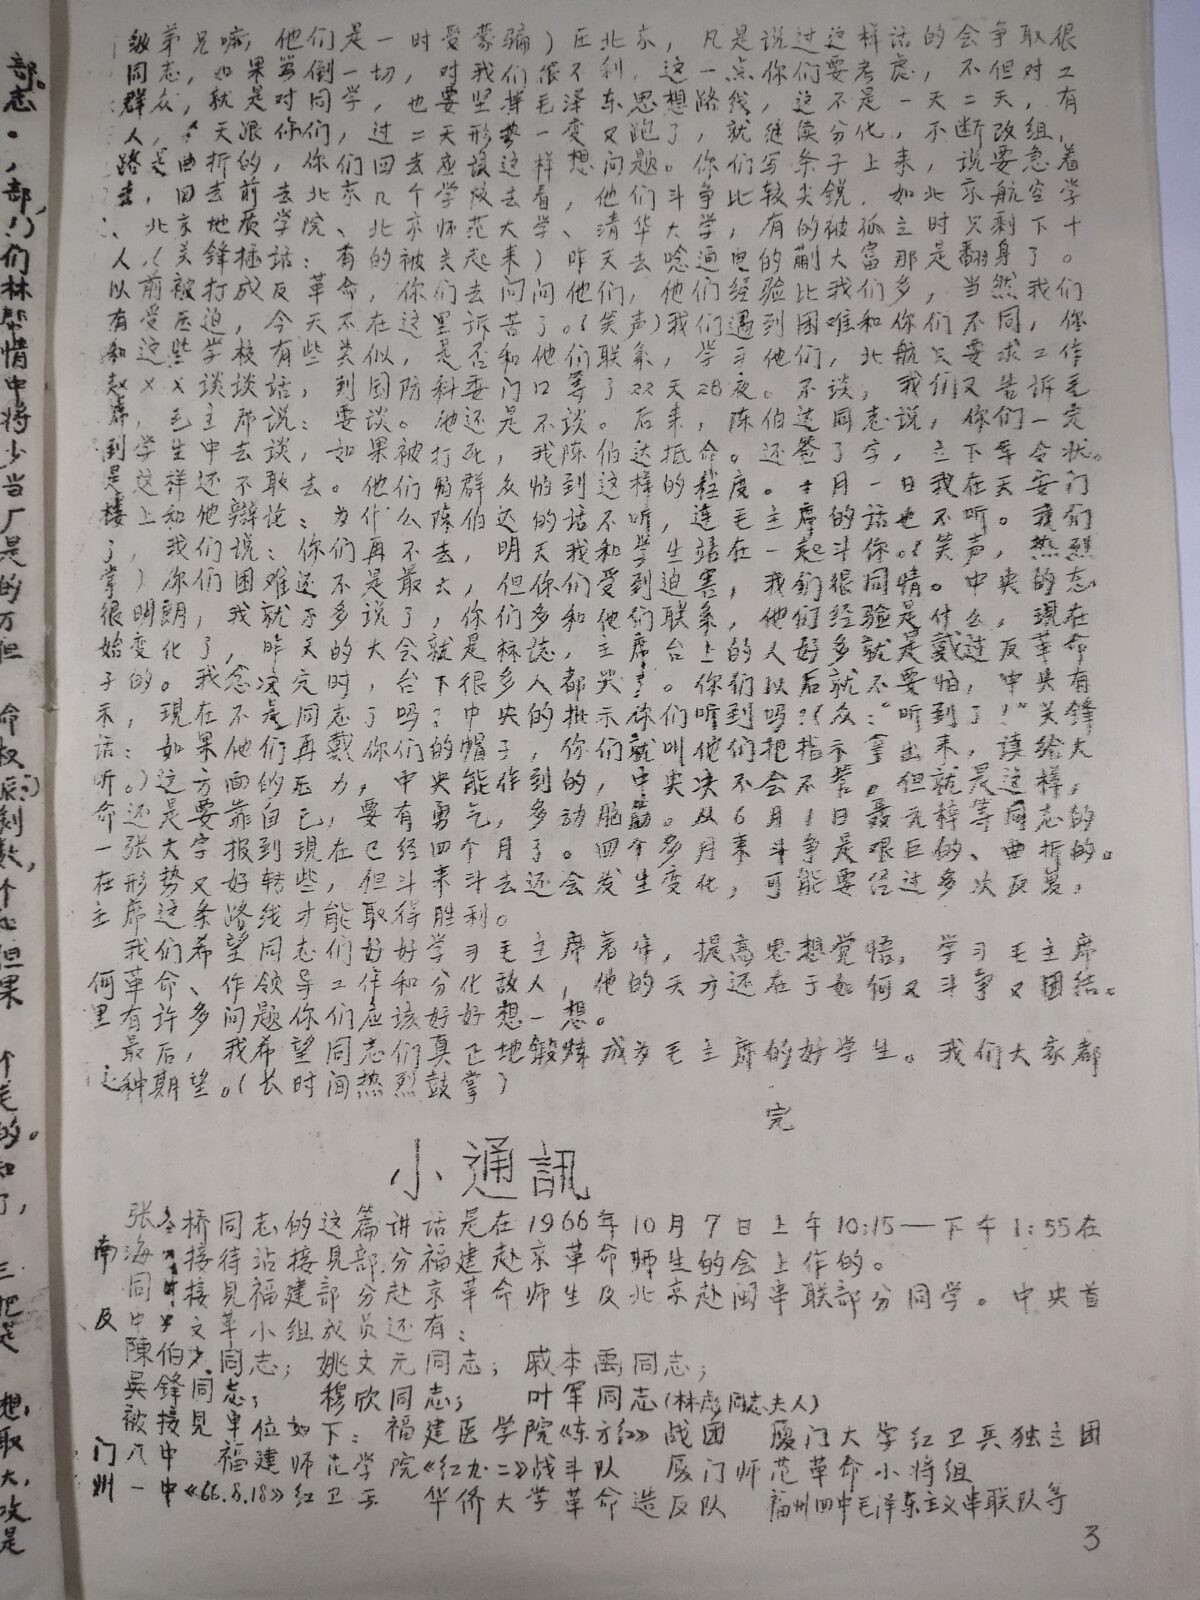 级弟兄嘛,他们是一时受蒙骗)在北京,凡是说过这样话的会争取很
同志,如果当倒一切,对我们很不利,这一点你们要考虑,不但对工
群众,就是对同学,也要坚持毛泽东思想路线,这不是一天二天,有
人,今天跟你们,过二天形势一变又跑了,就继续分化,不断改组,
路是曲折的,你们回去应该这样想问题。你们写条子上来,说要急着
去,回去前去北京几个学校去看,他们斗争比较尖锐,如北京航空学
、北京地质学院、北京师范大学、清华大学,有的被孤立时只剩下十
人,(关锋插话:有的被关起来)昨天去唸通电的蒯大富那是翻身了。
以前被打成反革命,你们去问问他们,他们经验比我们多,当然我们
有受压迫,今天不在这里诉苦了。(笑声)我们遇到困难和你们不同,你
和这些学校有些类似,是否和他们联系,学习他们,北航只要求工作
赵××谈谈话,到国防科委门口等了22天28夜。不谈,我们又告诉毛
席,毛主席说:要谈。他还是不谈。后来,陈伯达同志说,你们一定
到学生中去谈,如果被打死,我陈伯达抵命。还签了字,立下军令状。
是这样还不敢去。他们怕群众怕到这样的程度。十月一日我在天安门
楼上和他辩论:为什么陈伯达的话不听,连毛主席的话也不听。我们
了,我们说:你们再不去,明天我和学生站在一起斗你。(笑声,热烈
掌)你们困难还不是最大,但你们受到迫害,我们很同情。中央的态
很明朗,我就不多说了,你们多和他们联系,他们经验是什么,现在
始变化了,昨天的大会就是标志,主席台上的人好多就是戴过反革命
子的。我念决定时,台下很多人都哭了。你们以后就不要怕,中央有
示,现在不是同志了吗?中央的批示你们听到吗?(众:“听到了!”关锋
话:如果他们再戴你们的帽子,你们就叫他们把指示拿出来,读给大
听。)这方面的压力,中央能作到的,中央决不会不答。但就是这样,
命还是要靠自己,要有勇气,多动脑筋。从6月1日聂元梓等同志的
一张大字报到现在已经四个月了。四个多月来斗争是艰巨的、曲折的。
在形势又好转些,但斗来斗去还会发生变化,可能要经过多次反复,
主席这条路线才能取得胜利。
我们希望同志们好好学习毛主席著作,提高思想觉悟,学习毛主席
何革命、作领导工作和分化敌人,他的天才还在于如何又斗争又团结。
里有许多问题你们应该好好想一想。
最后,我希望同志们真正地锻炼成为毛主席的好学生。我们大家都
这种期望。(长时间热烈鼓掌)
完
小通訊
张春桥同志的这篇讲话是在1966年10月7日上午10:15—下午1:55在
南海接待站接見部分福建赴京革命师生的会上作的。
同时接見福建部分赴京革命师生及北京赴闽串联部分同学。中央首
及中央文革小组成员还有:
陳伯达同志; 姚文元同志; 戚本禹同志;
吳锋同志; 穆欣同志; 叶军同志(林彪同志夫人)
被接見单位如下:福建医学院《东方红》战团 厦门大学红卫兵独立团
门八中 福建师范学院《红九二》战斗队 厦门师范革命小将组
州一中《66.8.18》红卫兵 华侨大学革命造反队 福州四中毛泽东主义串联队等
3